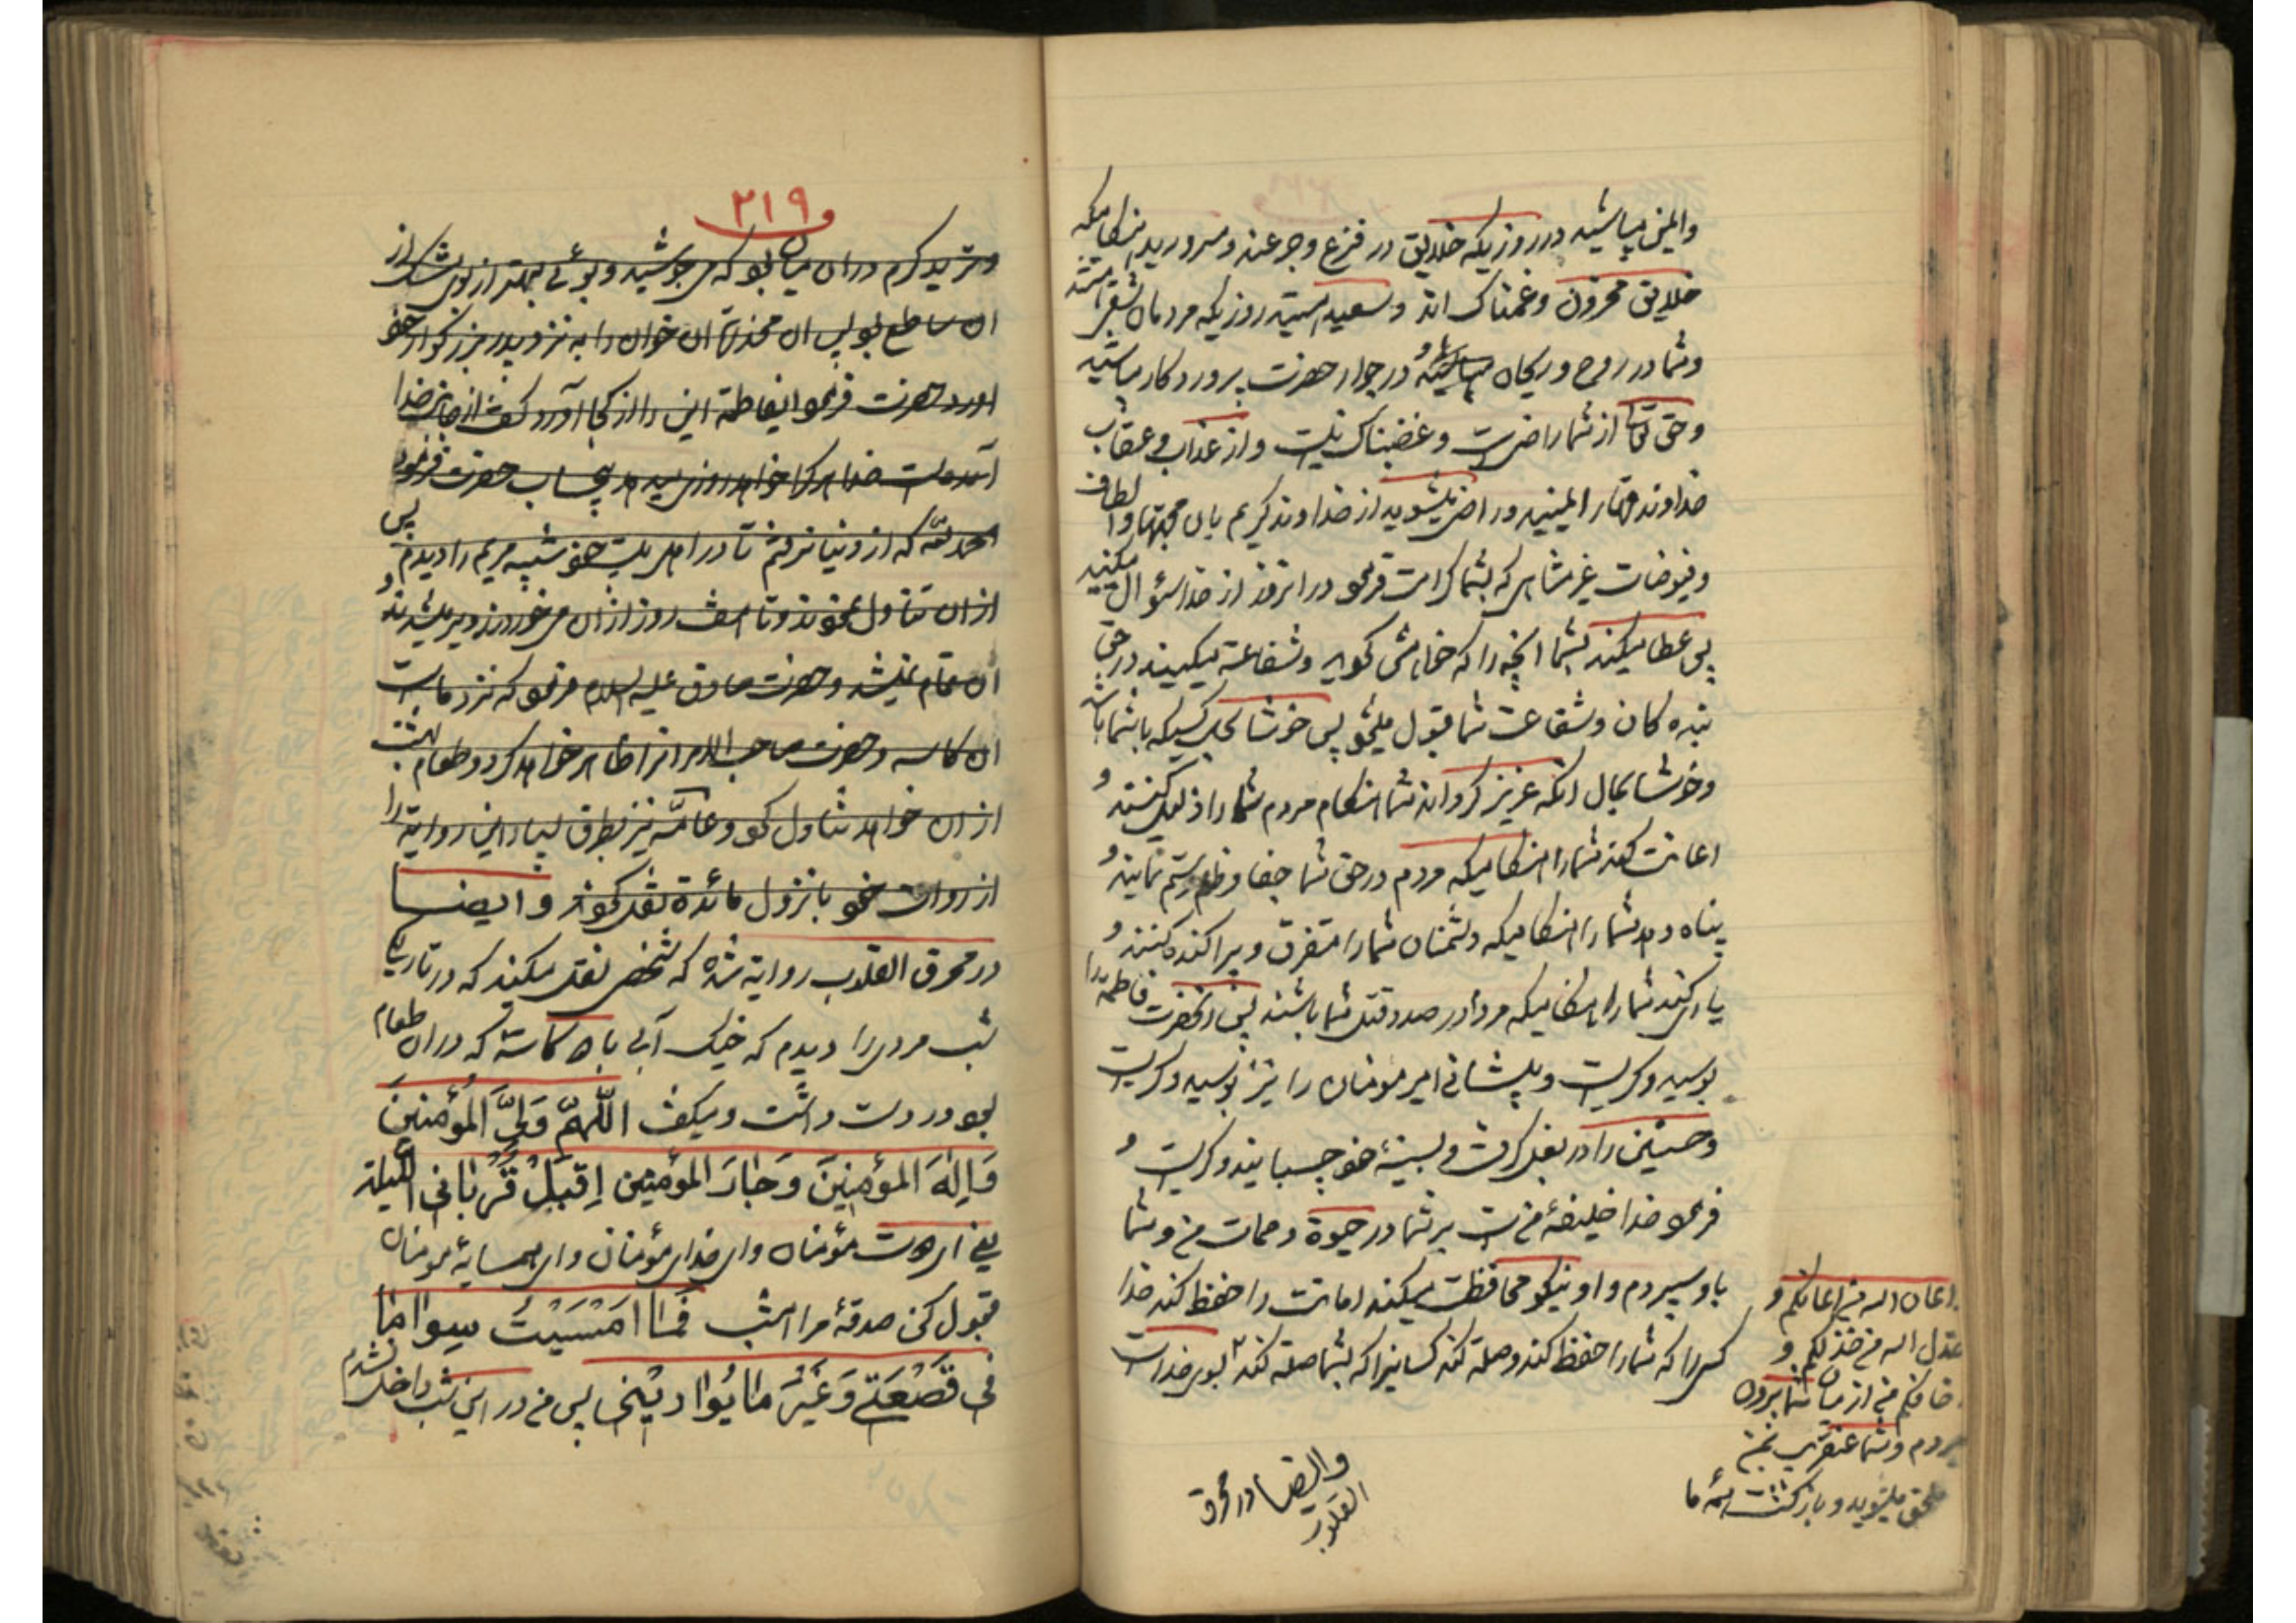 وایمن میباشید در روزیکه خلایق در فزع و جزعند و مسرورید هنگامیکه
خلایق محزون و غمناک اند و سعید هستید روزیکه مردمان شقی هستند
و شما در روح و ریحان و در جوار حضرت پروردکار میباشید
و حق تعالی از شما راضیست و غضبناک نیست و از عذاب و عقاب
خداوند قهار ایمنید و راضی میشوید از خداوند کریم بان محبتها و الطاف
و فیوضات غیر متناهی که بشما کرامت فرمود در انروز از خدا سؤال میکنید
پس عطا میکند بشما انچه را که خواهش کنید و شفاعة میکنید در حق
بنده کان و شفاعت شما قبول میشود پس خوشا بحال کسیکه با شما باشد
و خوشا بحال انکه عزیز کرداند شما را هنکام مردم شما را ذلیل کنند و
اعانت کند شما را هنکامیکه مردم در حق شما جفا و ظلم و ستم نمایند و
پناه دهد شما را هنکامیکه دشمنان شما را متفرق و پراکنده کنند و
یاری کند شما را هنکامیکه مردم در صدد قتل شما باشند پس انحضرت فاطمه را
بوسید و کریست و پیشانی امیر مؤمنان را نیز بوسید و کریست
و حسنین را در بغل کرفت و بسینهٔ خود چسبانید و کریست و
فرمود خدا خلیفهٔ منست بر شما در حیوة و ممات من و شما
باو سپردم و او نیکو محافظت میکند امانت را حفظ کند خدا
کسی را که شما را حفظ کند و صلة کند کسانیرا که بشما صلة کند بسوی خداست
اعان الله من اعانکم و
خذل الله من خذلکم و
من از میان شما بیرون
میردم و شما عنقریب بمن
ملحق میشوید و بازکشت همه ما
وایضا در محرق
القلوب
و ۲۱۹
و ترید کرم در ان میان بود که می جوشید و بوئی بهتر از بوی مشک از
ان ساطع بود پس ان مخدره ان خوان را به نزد پدر بزرکوار خود
اورد حضرت فرمود ایفاطمة این را از کجا آورد کفت از جانب خدا
آمده است خدا هر که را خواهد روزی میدهد بیحساب حضرت فرمود
الحمد لله که از دنیا نرفتم تا در اهل بیت خود شبیه مریم را دیدم پس
از ان تناول نمودند و تا هفت روز از ان می خوردند و سیر میشدند و
ان تمام نمیشد و حضرت صادق علیه السلام فرمود که نزد ماست
ان کاسه و حضرت صاحب الامر انرا ظاهر خواهد کرد و طعام بهشت
از ان خواهد تناول کرد و عامّه نیز بطرق بسیار این روایة را
از روات خود با نزول مائدة نقل کرده و ایضا
در محرق القلوب روایة شده که شخصی نقل میکند که در تاریکی
شب مردی را دیدم که خیک آبی با کاسه که در ان طعام
بود در دست داشت و میکفت اللّهمّ وَلیَّ المُؤمنینَ
وَاِلهَ المؤمنینَ وَجارَ المؤمنین اِقبَل قُربانی اللیلة
یعنی ای دوست مؤمنان و ای خدای مؤمنان و ای همسایهٔ مؤمنان
قبول کن صدقهٔ مرا امشب فَما اَمْسَیتُ سِوا ما
فی قَصعَتی وَغَیرَ ما یُوارینی پس من در این شب داخل نشدم